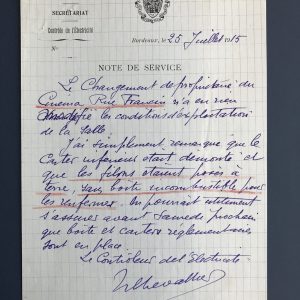 SECRÉTARIAT
Contrôle de l'Électricité
Bordeaux, le 25 Juillet 1915
N°
NOTE DE SERVICE
Le Changement de propriétaire du
Cinéma Rue Francin n'a en rien
modifié les conditions d'exploitation
de la salle.
J'ai simplement remarqué que le
Carter inférieur était démonté et
que les films étaient posés à
terre, sans boîte incombustible pour
les renfermer. On pourrait utilement
s'assurer avant Samedi prochain
que boîte et carters réglementaires
sont en place.
Le Contrôleur de l'Électricité